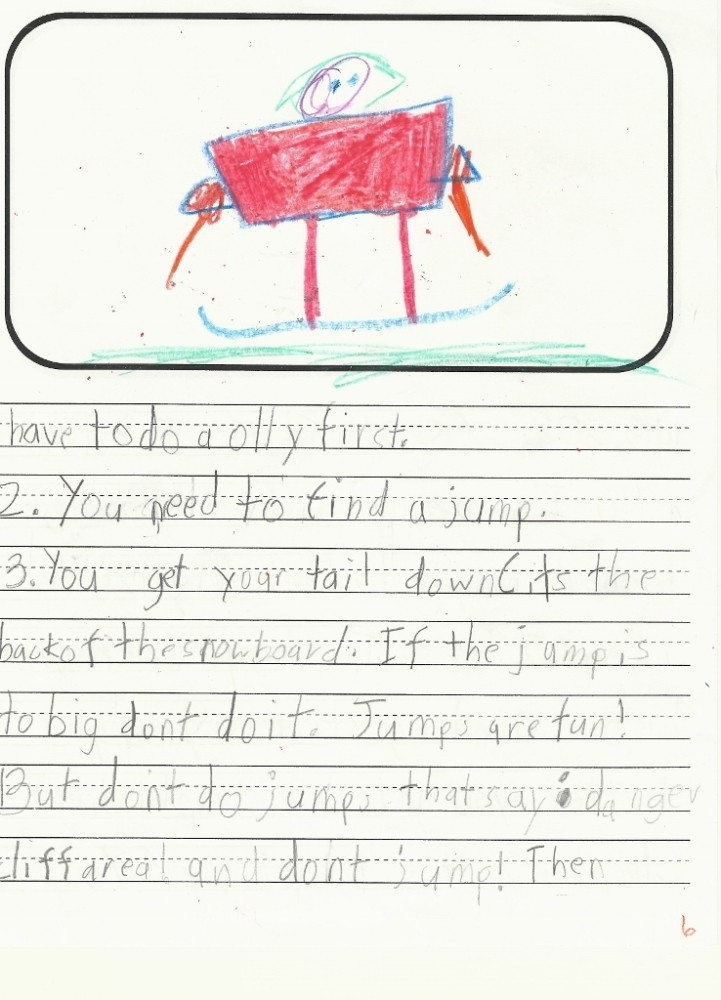 have to do a olly first.
2. You need to find a jump.
3. You get your tail down(its the
back of the snowboard. If the jump is
to big dont do it. Jumps are fun!
But dont do jumps that say: danger
cliff area! and dont jump! Then
6